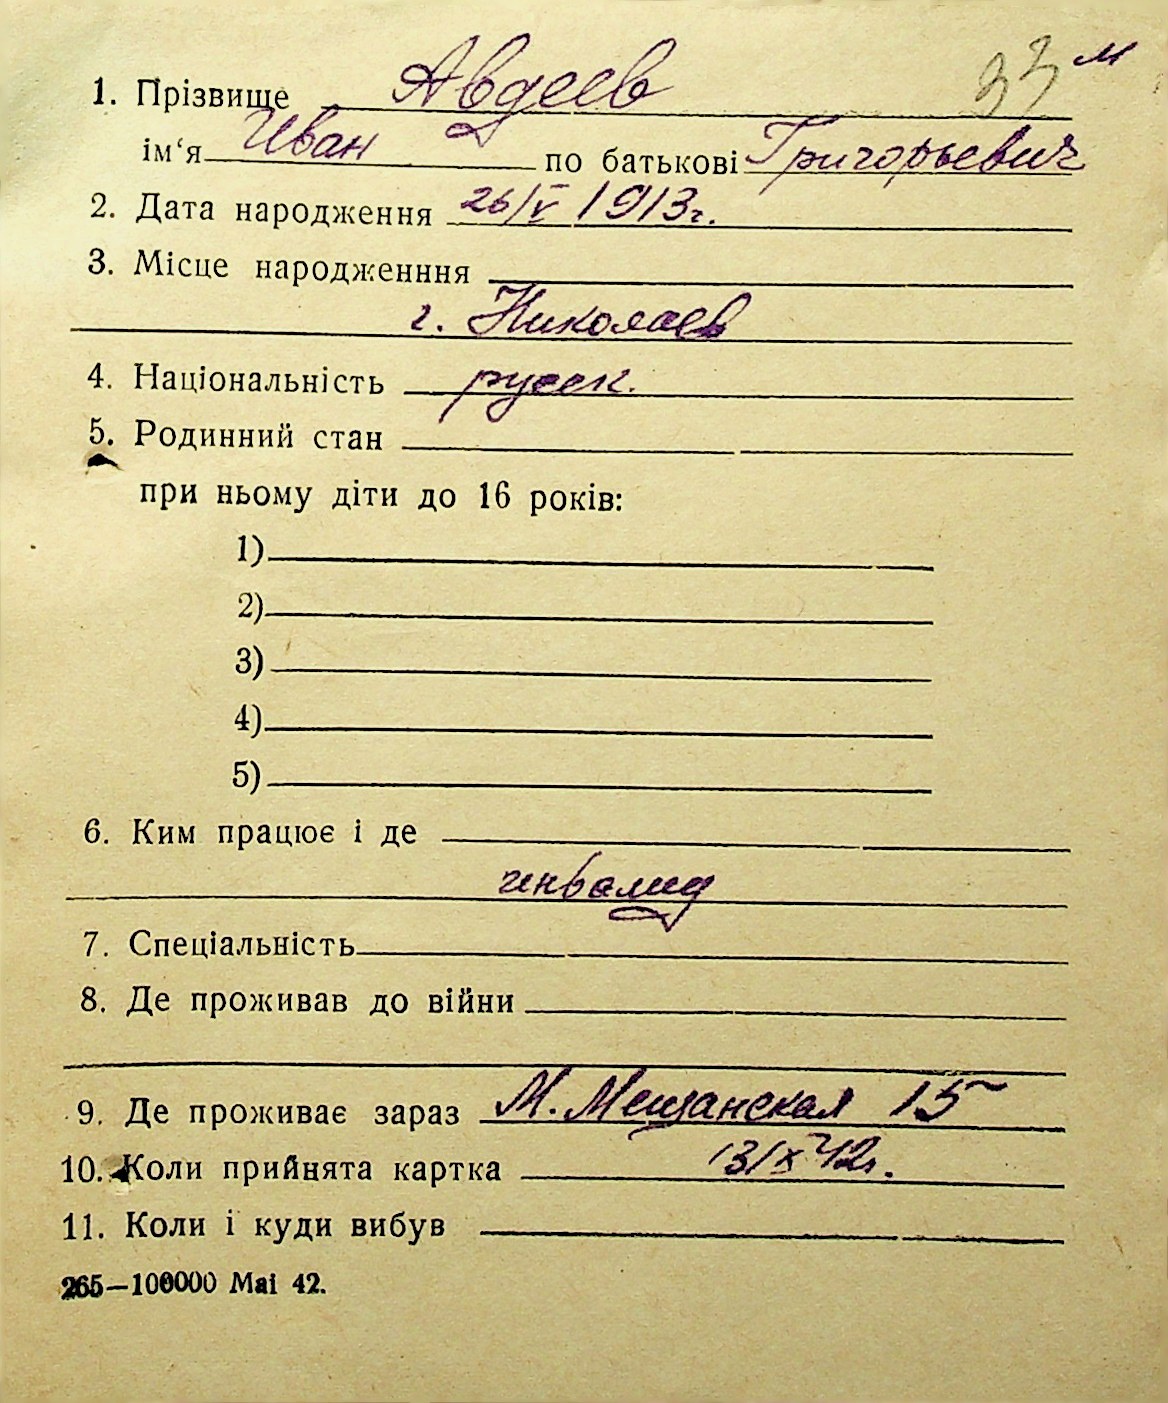 33 м
1. Прізвище Авдеев
ім‘я Иван по батькові Григорьевич
2. Дата народження 26/V 1913г.
3. Місце народженння
г. Николаев
4. Національність русск.
5. Родинний стан
при ньому діти до 16 років:
1)
2)
3)
4)
5)
6. Ким працює і де
инвалид
7. Спеціальність
8. Де проживав до війни
9. Де проживає зараз М. Мещанская 15
10. Коли прийнята картка 13/X 42г.
11. Коли і куди вибув
265—100000 Mai 42.